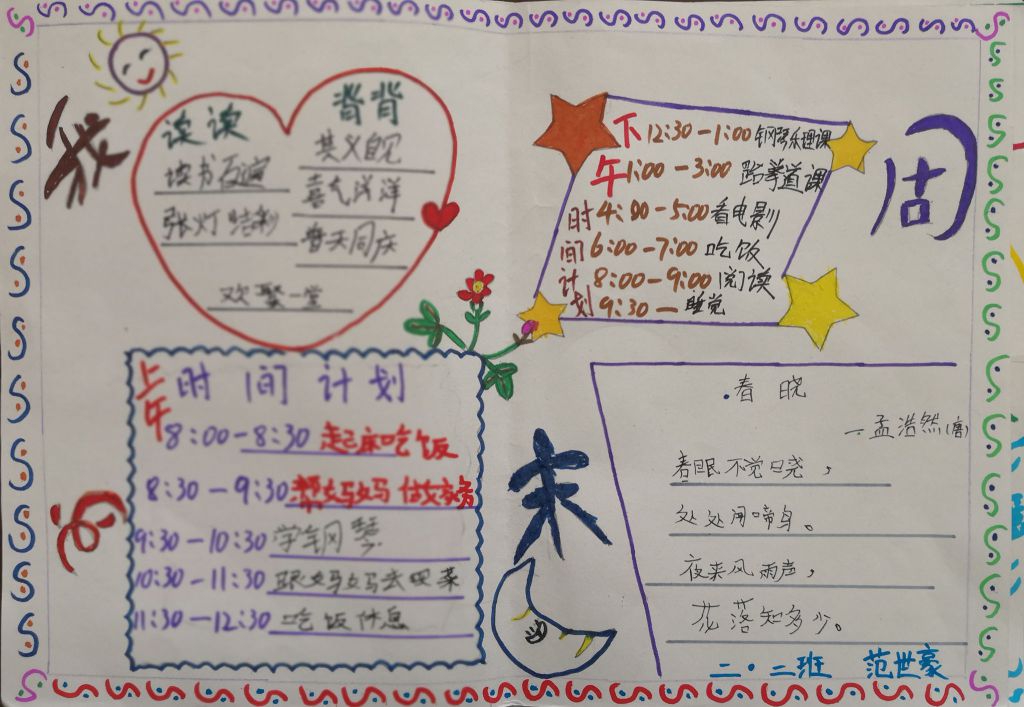 我的周末
读读
背背
张灯结彩
喜气洋洋
普天同庆
欢聚一堂
上午时间计划
8:00-8:30 起床吃饭
8:30-9:30 帮妈妈做家务
9:30-10:30 学钢琴
10:30-11:30 跟妈妈去买菜
11:30-12:30 吃饭休息
下午时间计划
12:30-1:00 钢琴乐理课
1:00-3:00 跆拳道课
4:00-5:00 看电影
6:00-7:00 吃饭
8:00-9:00 阅读
9:30— 睡觉
春晓
—孟浩然(唐)
春眠不觉晓，
处处闻啼鸟。
夜来风雨声，
花落知多少。
二·二班 范世豪